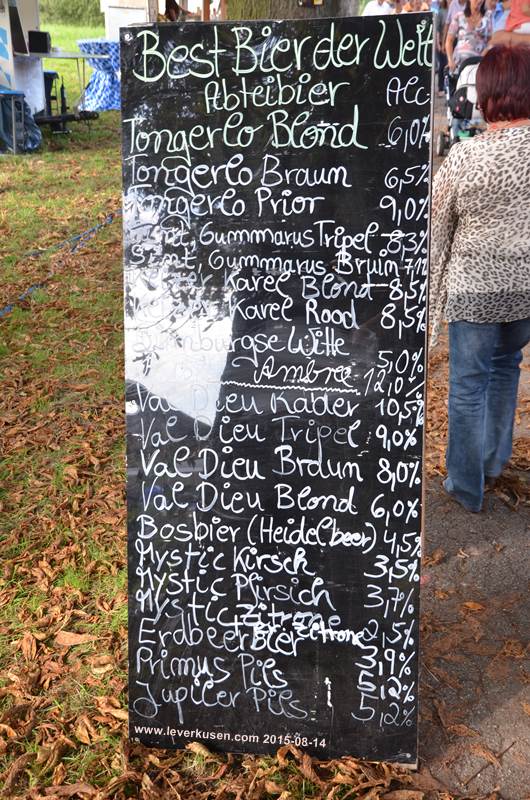 Best Bier der Welt
Abteibier Alc
Tongerlo Blond 6,0%
Tongerlo Braum 6,5%
Tongerlo Prior 9,0%
Sint, Gummarus Tripel 8,3%
Sint, Gummarus Bruin 7,1%
Karel Blond 8,5%
Karel Rood 8,5%
Witte 5,0%
Ambree 12,0%
Val Dieu Kader 10,5%
Val Dieu Tripel 9,0%
Val Dieu Braun 8,0%
Val Dieu Blond 6,0%
Bosbier (Heidelbeer) 4,5%
Mystic Kirsch 3,5%
Mystic Pfirsich 3,7%
Mystic Zitrone 2,5%
Erdbeer Bier Zittrone 3,9%
Primus Pils 5,2%
Jupiler Pils 5,2%
www.leverkusen.com 2015-08-14